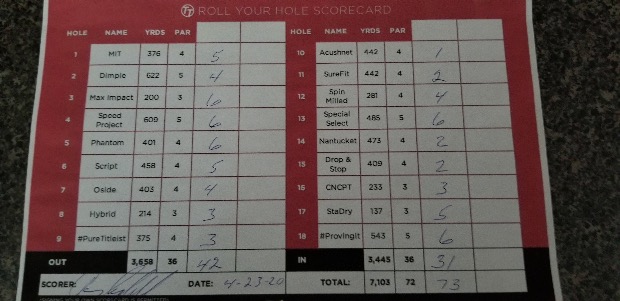 TT ROLL YOUR HOLE SCORECARD
HOLE NAME YRDS PAR
1 MIT 376 4 5
2 Dimple 622 5 4
3 Max Impact 200 3 6
4 Speed Project 609 5 6
5 Phantom 401 4 6
6 Script 458 4 5
7 Oside 403 4 4
8 Hybrid 214 3 3
9 #PureTitleist 375 4 3
OUT 3,658 36 42
HOLE NAME YRDS PAR
10 Acushnet 442 4 1
11 SureFit 442 4 2
12 Spin Milled 281 4 4
13 Special Select 485 5 6
14 Nantucket 473 4 2
15 Drop & Stop 409 4 2
16 CNCPT 233 3 3
17 StaDry 137 3 5
18 #ProvingIt 543 5 6
IN 3,445 36 31
SCORER: DATE: 4-23-20 TOTAL: 7,103 72 73